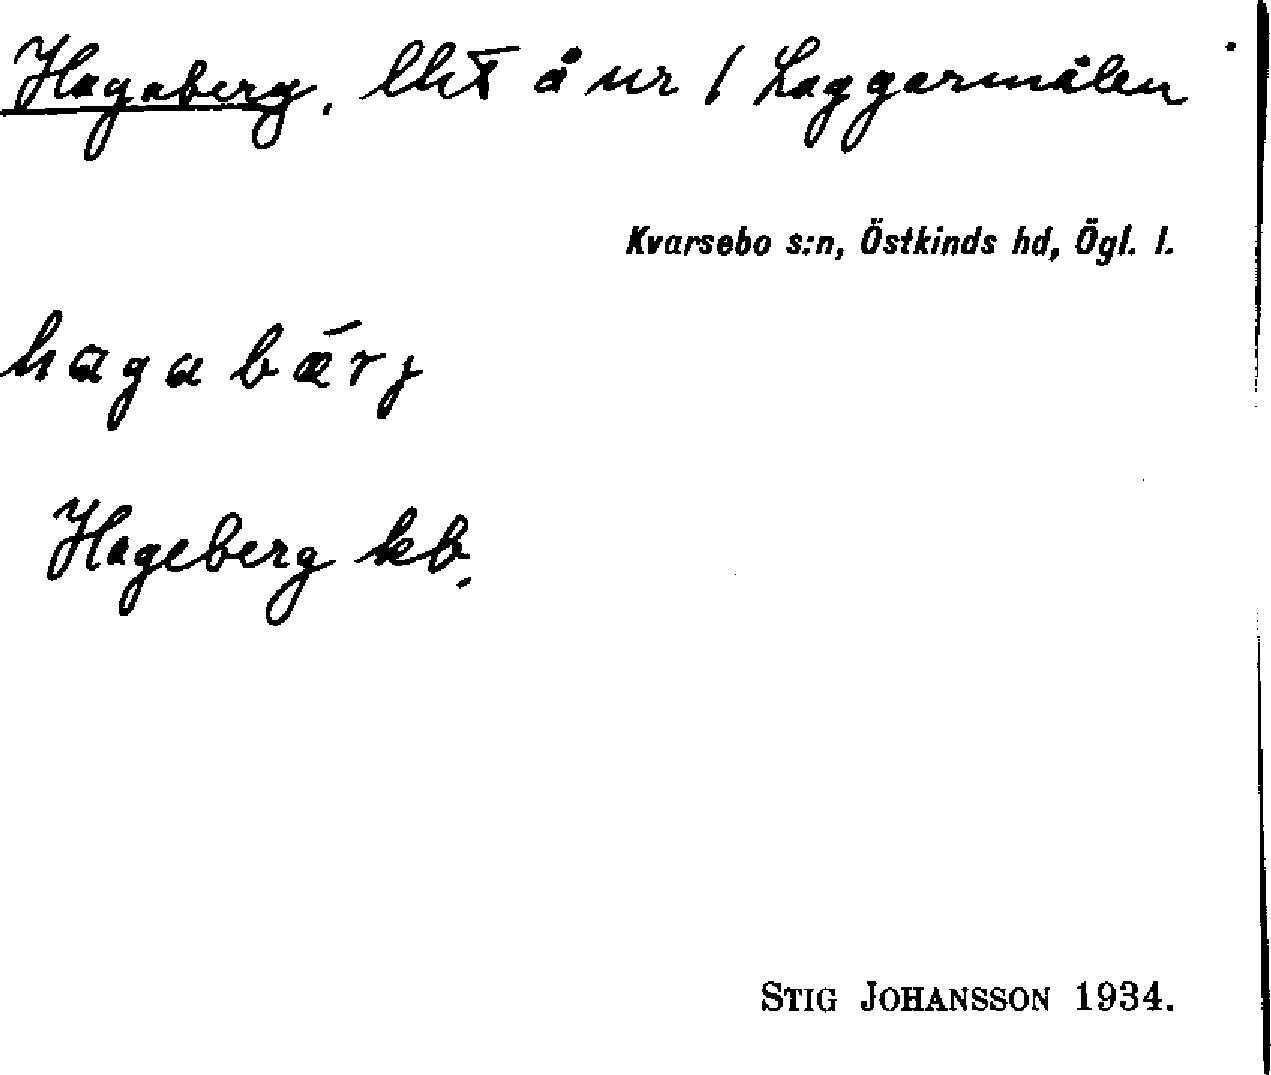 Hagaberg, lht å nr 1 Laggarmålen
Kvarsebo s:n, Östkinds hd, Ögl. l.
hagabärj
Hageberg kb.
STIG JOHANSSON 1934.